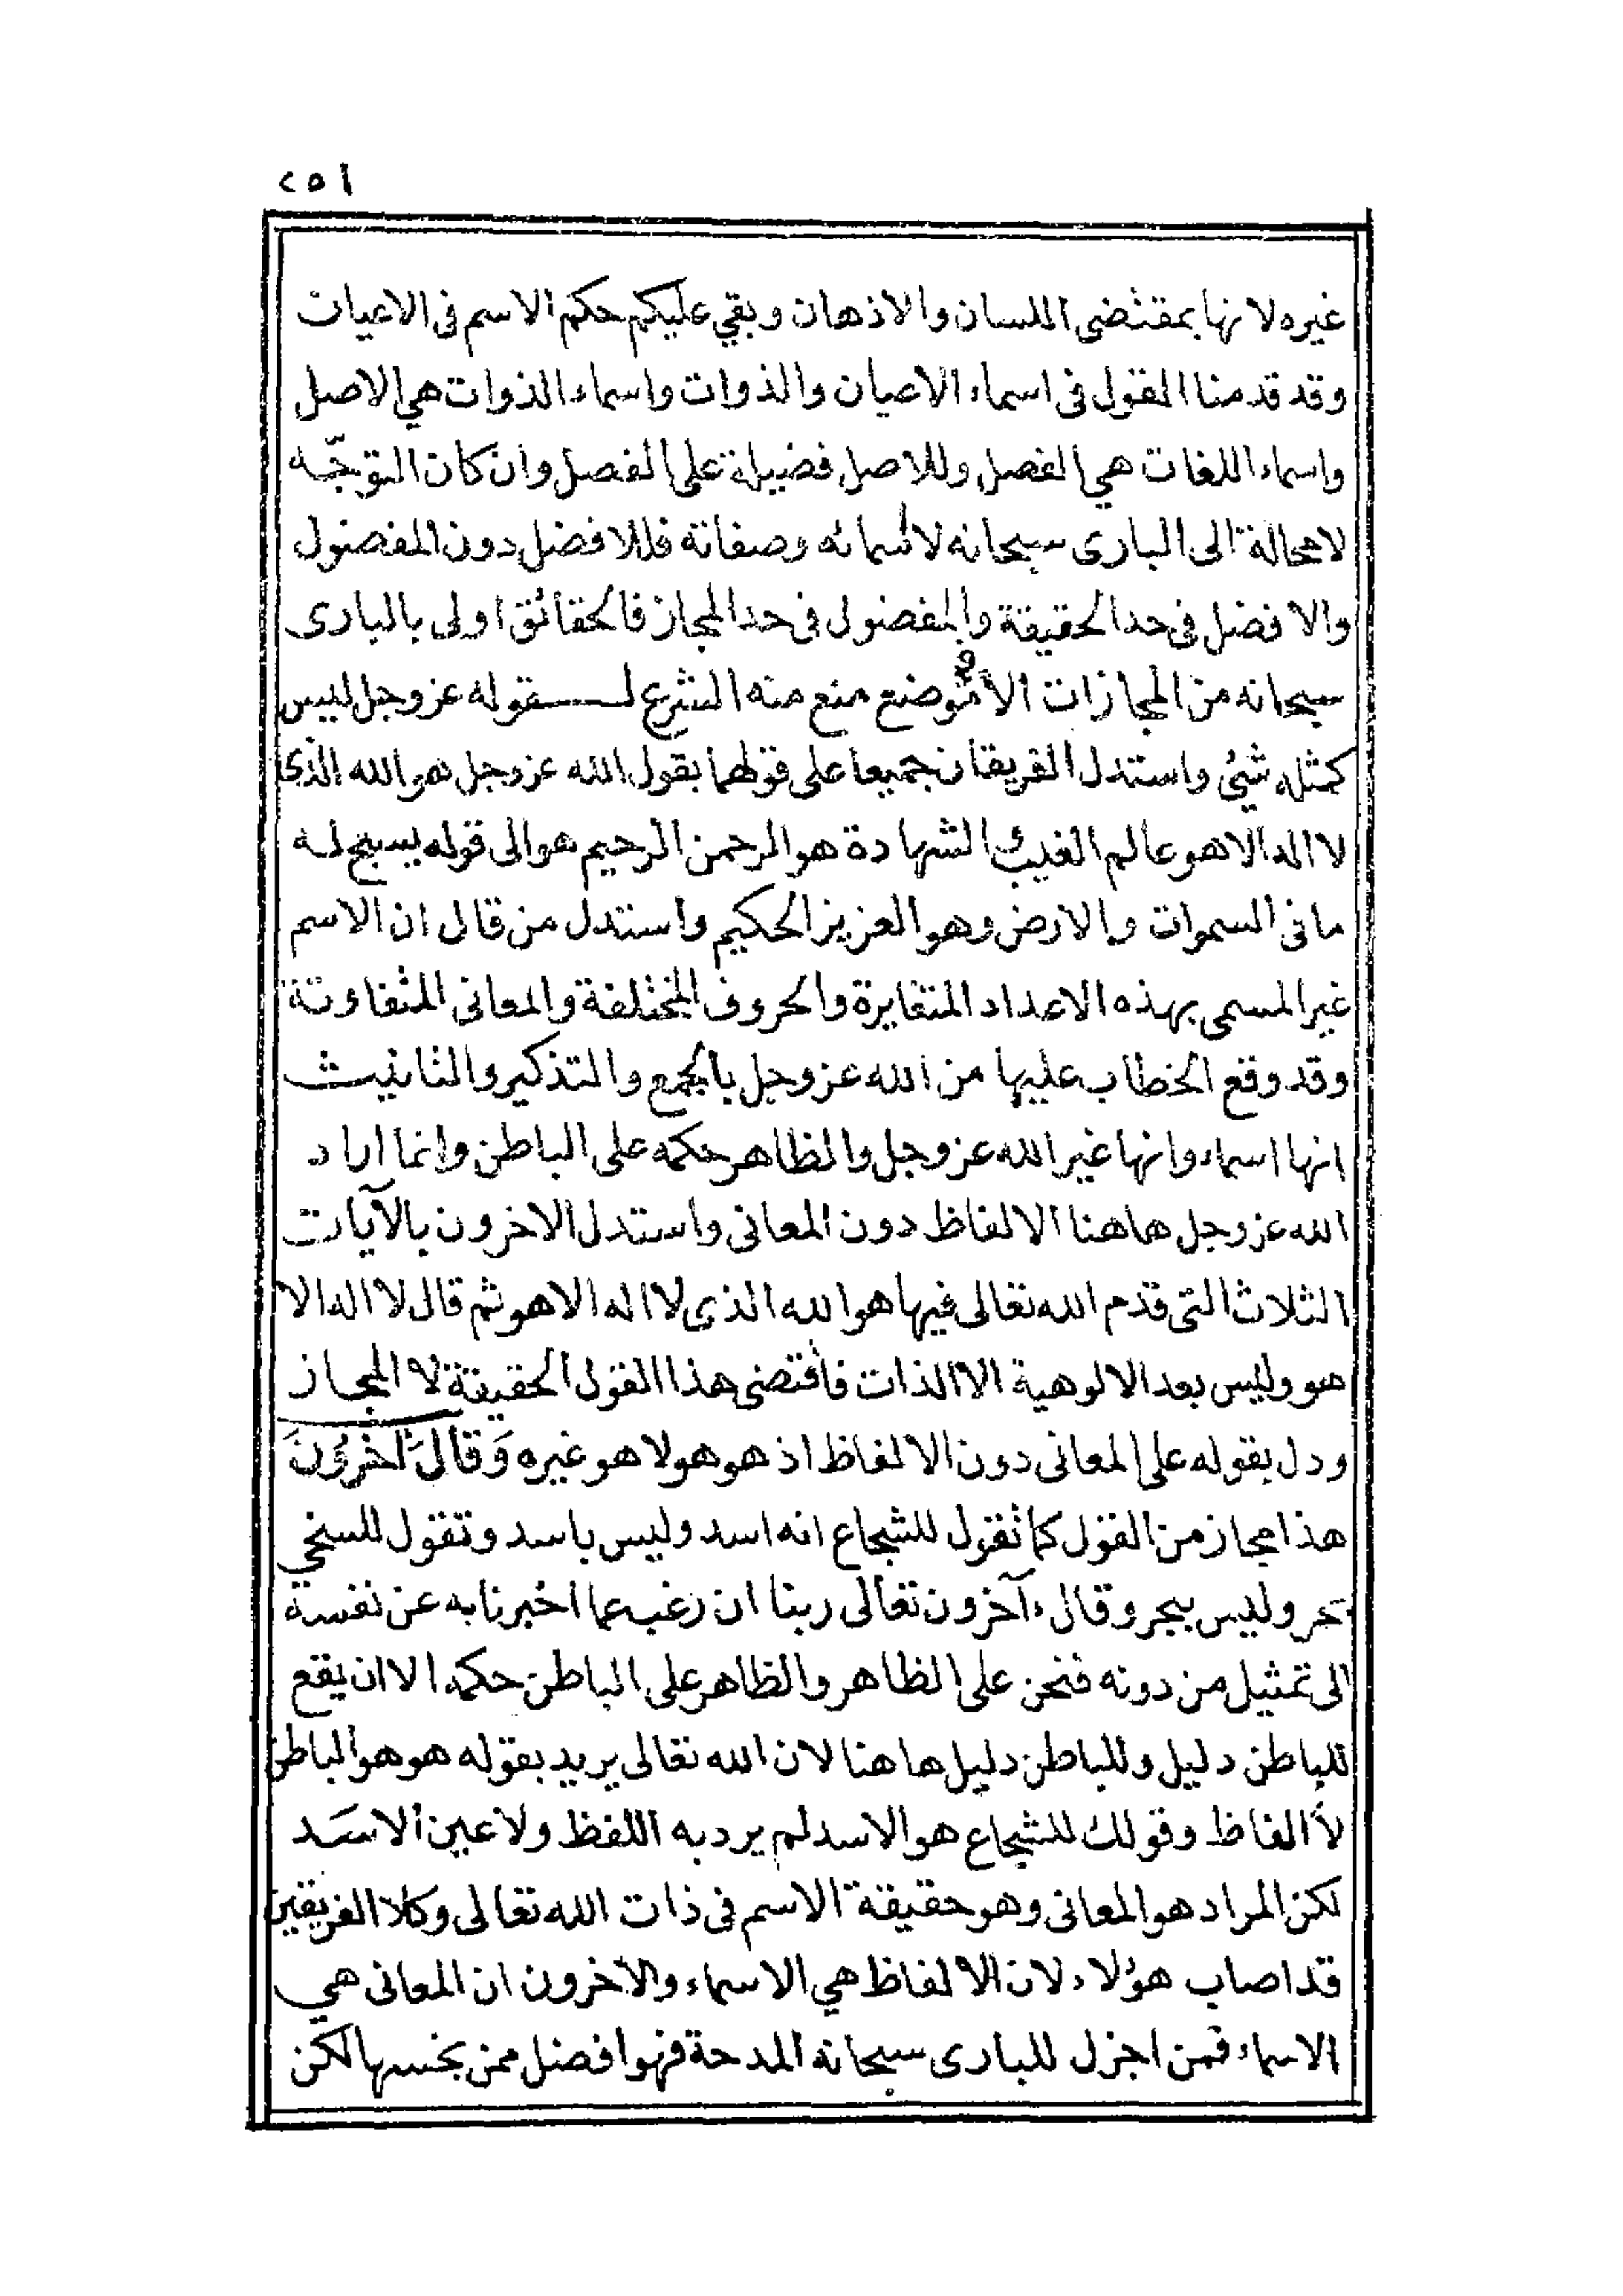 ٢٥١
غيره لانها بمقتضى اللسان والاذهان وبقي عليكم حكم الاسم فى الاعيان
وقد قدمنا القول فى اسماء الاعيان والذوات واسماء الذوات هي الاصل
واسماء اللغات هي الفصل وللاصل فضيلة على الفصل وان كان التوجّه
لا محالة الى البارى سبحانه لاسمائه وصفاته فللافضل دون المفضول
والافضل فى حد الحقيقة والمفضول فى حد المجاز فالحقائق اولى بالبارى
سبحانه من المجازات الا فى موضع منع منه الشرع لقوله عز وجل ليس
كمثله شئ واستدل الفريقان جميعا على قولهما بقول الله عز وجل هو الله الذى
لا اله الا هو عالم الغيب والشهادة هو الرحمن الرحيم هو الى قوله يسبح له
ما فى السموات والارض وهو العزيز الحكيم واستدل من قال ان الاسم
غير المسمى بهذه الاعداد المتغايرة والحروف المختلفة والمعانى المتفاوتة
وقد وقع الخطاب عليها من الله عز وجل بالجمع والتذكير والتانيث
انها اسماء وانها غير الله عز وجل والظاهر حكمه على الباطن وانما اراد
الله عز وجل هاهنا الالفاظ دون المعانى واستدل الاخرون بالآيات
الثلاث التى قدم الله تعالى فيها هو الله الذى لا اله الا هو ثم قال لا اله الا
هو وليس بعد الالوهية الا الذات فاقتضى هذا القول الحقيقة لا المجاز
ودل بقوله على المعانى دون الالفاظ اذ هو هو لا هو غيره وَقالَ آخرُونَ
هذا مجاز من القول كما تقول للشجاع انه اسد وليس باسد وتقول للسخي
بحر وليس ببحر وقال آخرون تعالى ربنا ان رغب عما اخبرنا به عن نفسه
الى تمثيل من دونه فنحن على الظاهر والظاهر على الباطن حكمه الا ان يقع
للباطن دليل وللباطن دليل هاهنا لان الله تعالى يريد بقوله هو هو الباطن
لا الفاظ وقولك للشجاع هو الاسد لم يرد به اللفظ ولا عين الاسَد
لكن المراد هو المعانى وهو حقيقة الاسم فى ذات الله تعالى وكلا الفريقين
قد اصاب هؤلاء لان الالفاظ هي الاسماء والآخرون ان المعانى هي
الاسماء فمن اجزل للبارى سبحانه المدحة فهو افضل ممن بخسها لكن